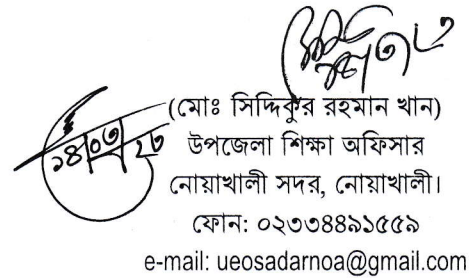 ১৪/০৩/২৩
(মোঃ সিদ্দিকুর রহমান খান)
উপজেলা শিক্ষা অফিসার
নোয়াখালী সদর, নোয়াখালী।
ফোন: ০২৩৩৪৪৯১৫৫৯
e-mail: ueosadarnoa@gmail.com